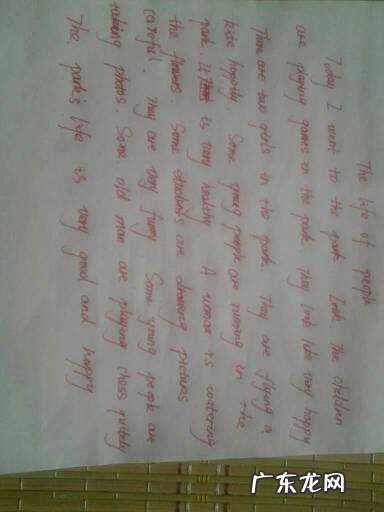 The life of people
Today I went to the park. Look. The children
are playing games in the park. They look like very happy
There are two girls in the park. They are flying a
kite happily. Some young people are running in the
park. It is very healthy. A woman is watering
the flowers. Some students are drawing pictures
careful. They are very funny. Some young people are
taking photos. Some old man are playing chess quietly
The park's life is very good and happy
广东龙网